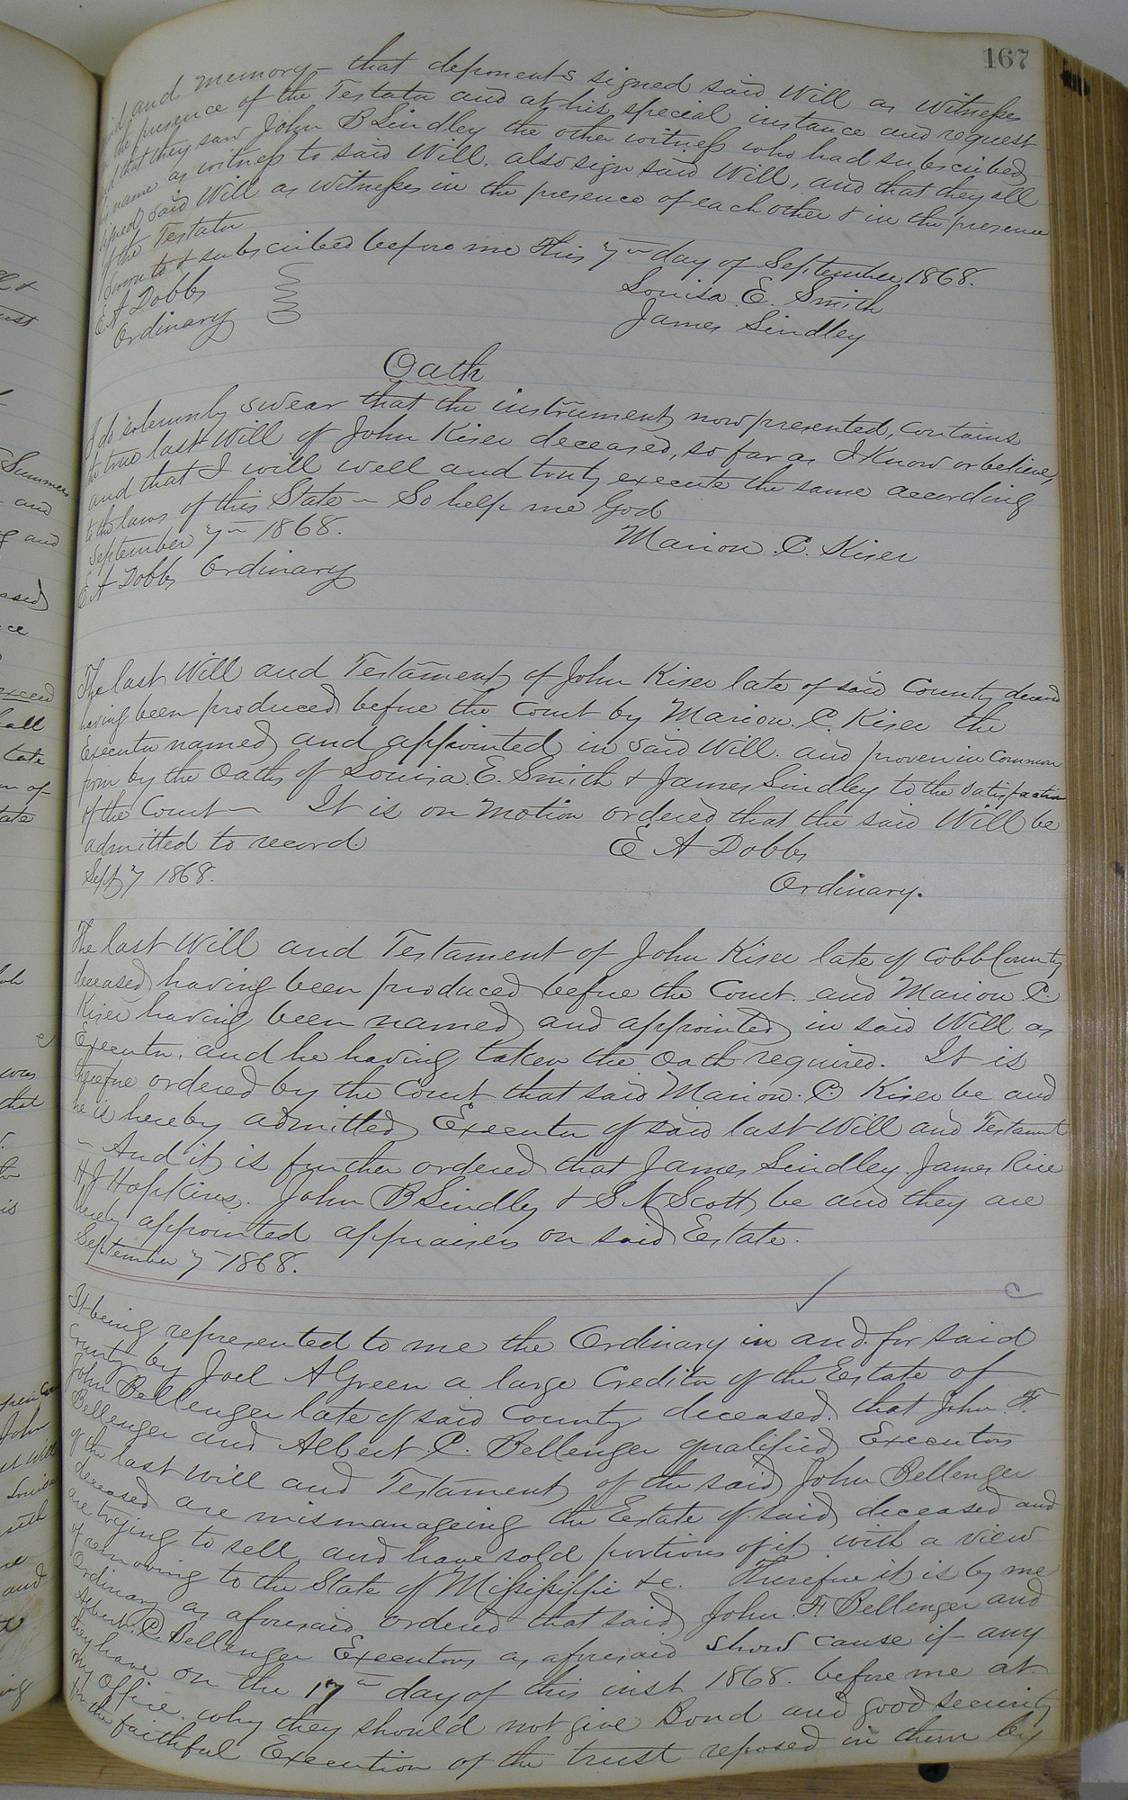 167
and memory – that deponents signed said Will as Witnesses
the presence of the Testator and at his special instance and request
that they saw John B Lindley the other witness who had subscribed
his name as witness to said Will. also sign said Will, and that they all
signed said Will as Witnesses in the presence of each other & in the presence
of the Testator
Sworn to & subscribed before me this 7th day of September 1868.
E A Dobbs
Ordinary
Louisa E. Smith
James Lindley
Oath
I do solemnly swear that the instrument now presented, contains
the true last Will of John Kiser deceased, so far as I know or believe,
and that I will well and truly execute the same according
to the laws of this State – So help me God
September 7th 1868.
Marion C. Kiser
E A Dobbs Ordinary
The last Will and Testament of John Kiser late of said County deceased
having been produced before the Court by Marion C. Kiser the
Executor named and appointed in said Will. and proven in Common
form by the Oaths of Louisa E. Smith & James Lindley to the satisfaction
of the Court – It is on motion ordered that the said Will be
admitted to record.
Sept 7 1868.
E A Dobbs
Ordinary.
The last Will and Testament of John Kiser late of Cobb County
deceased having been produced before the Court and Marion C.
Kiser having been named and appointed in said Will as
Executor, and he having taken the oath required. It is
therefore ordered by the Court that said Marion C Kiser be and
he is hereby admitted Executor of said last Will and Testament
– And it is further ordered that James Lindley James Rice
H J Hopkins. John B Lindley & S N Scott be and they are
hereby appointed appraisers on said Estate.
September 7 1868.
It being represented to me the Ordinary in and for said
County by Joel A Green a large Creditor of the Estate of
John Bellenger late of said County deceased. that John F.
Bellenger and Albert C. Bellenger qualified Executors
of the last Will and Testament of the said John Bellenger
deceased are mismanageing the Estate of said deceased and
are trying to sell and have sold portions of it with a view
of removing to the State of Mississippi &c. Therefore it is by me
Ordinary as aforesaid ordered that said John F. Bellenger and
Albert C. Bellenger Executors as aforesaid show cause if any
they have on the 17th day of this inst 1868. before me at
my Office. why they should not give Bond and good security
for the faithful Execution of the trust reposed in them by